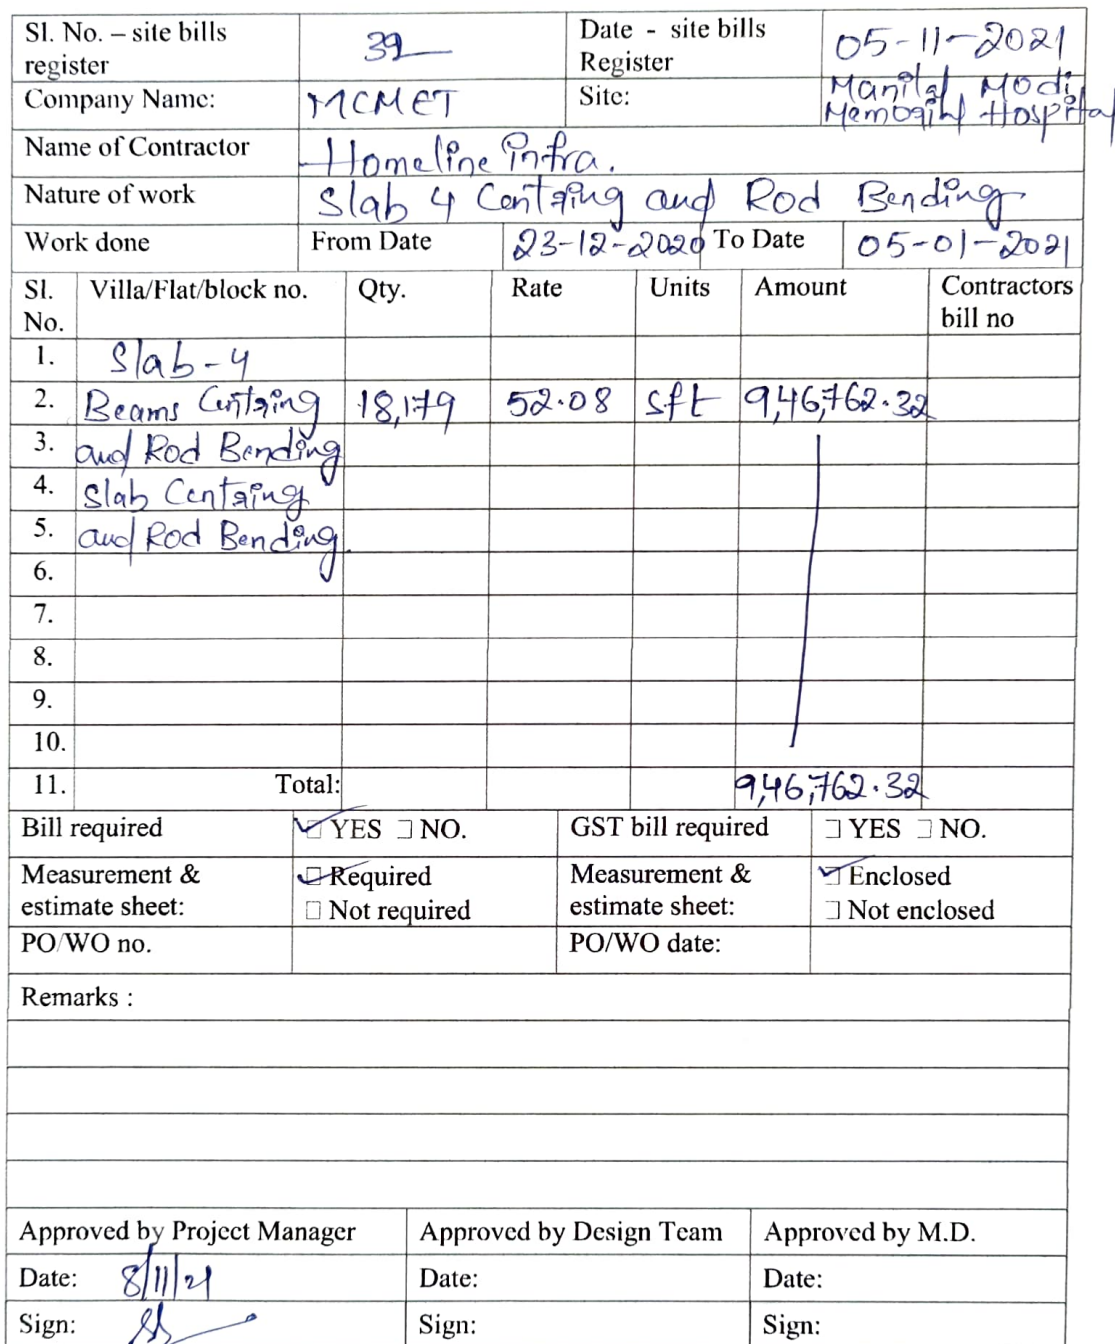 Sl. No. – site bills register 39 Date - site bills Register 05-11-2021
Company Name: MCMET Site: Manilal Modi Memorial Hospital
Name of Contractor Homeline infra.
Nature of work Slab 4 Centring and Rod Bending
Work done From Date 23-12-2020 To Date 05-01-2021
Sl. No. Villa/Flat/block no. Qty. Rate Units Amount Contractors bill no
1. Slab-4
2. Beams Centring 18,179 52.08 sft 9,46,762.32
3. and Rod Bending
4. Slab Centring
5. and Rod Bending.
6.
7.
8.
9.
10.
11. Total: 9,46,762.32
Bill required YES NO. GST bill required YES NO.
Measurement & estimate sheet: Required Not required Measurement & estimate sheet: Enclosed Not enclosed
PO/WO no. PO/WO date:
Remarks :
Approved by Project Manager Approved by Design Team Approved by M.D.
Date: 8/11/21 Date: Date:
Sign: Sign: Sign: